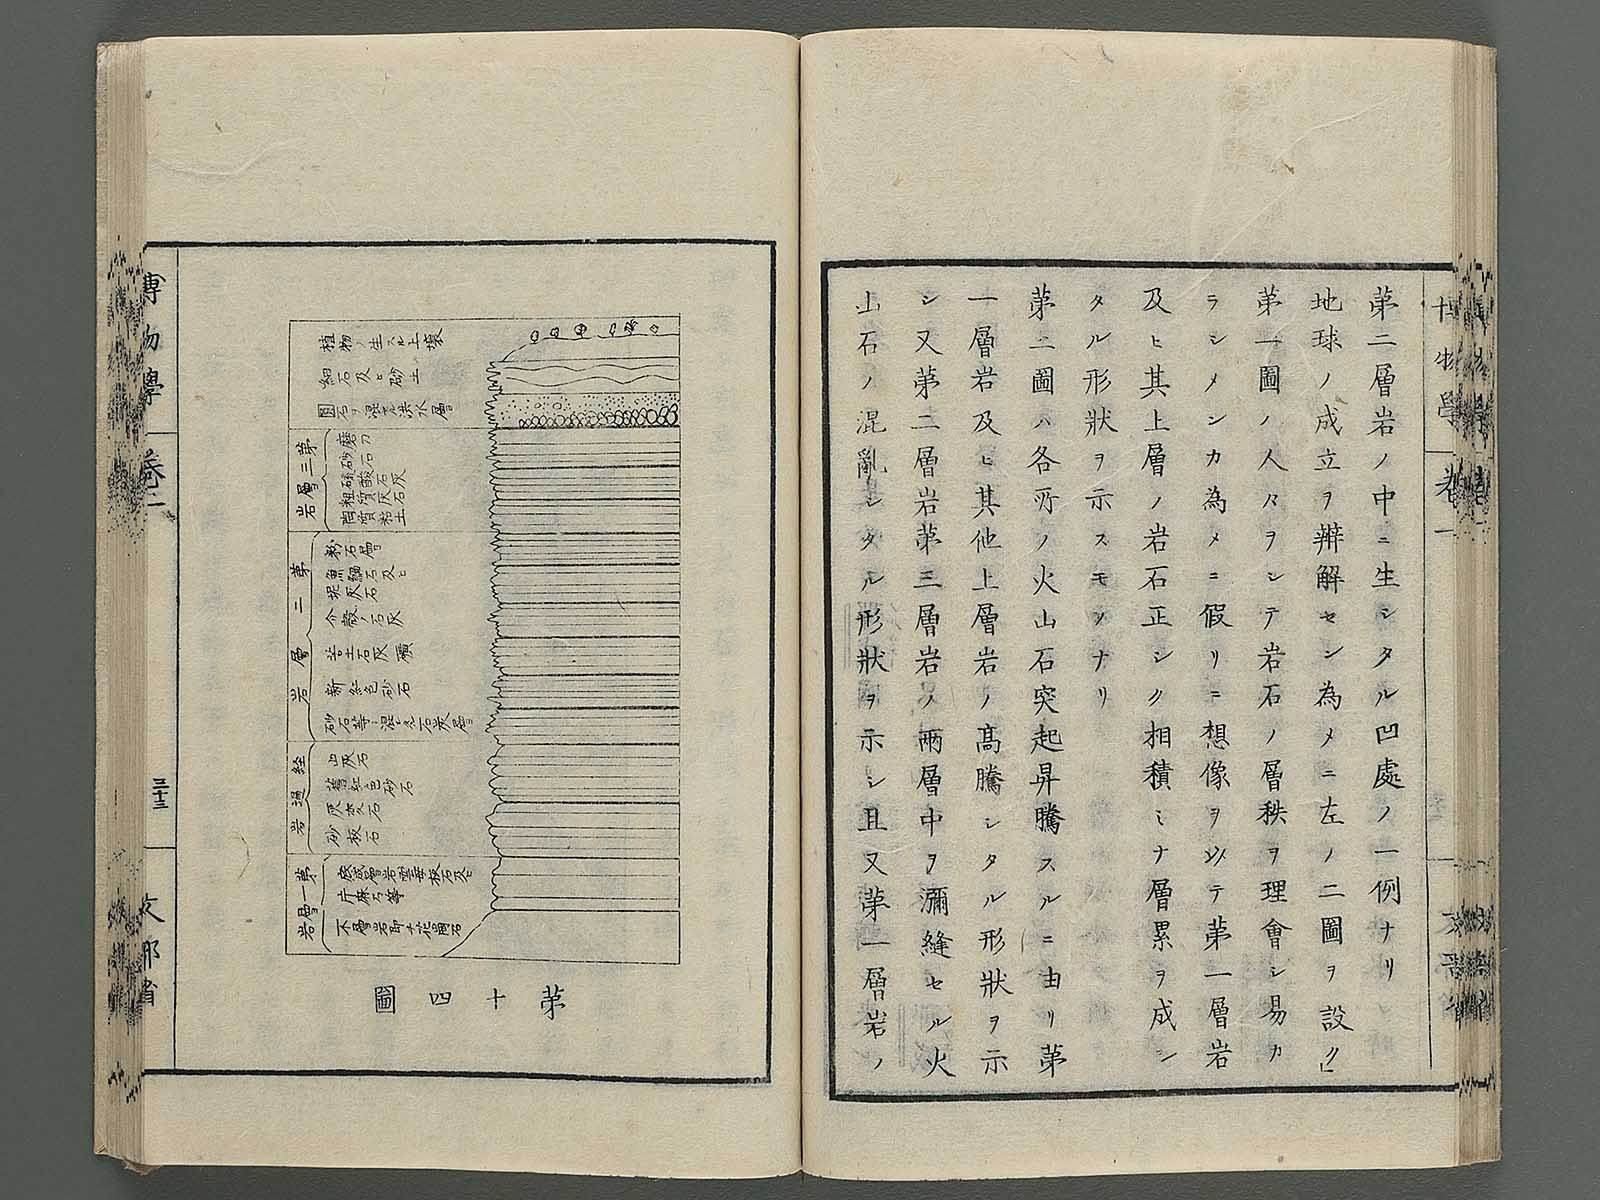 第二層岩ノ中ニ生シタル凹處ノ一例ナリ
地球ノ成立ヲ辨解セン為メニ左ノ二圖ヲ設ク
第一圖ノ人々ヲシテ岩石ノ層秩ヲ理會シ易カ
ラシメンカ為メニ假リニ想像ヲ以テ第一層岩
及ヒ其上層ノ岩石正シク相積ミナ層累ヲ成シ
タル形狀ヲ示スモノナリ
第二圖ハ各所ノ火山石突起昇騰スルニ由リ第
一層岩及ヒ其他上層岩ノ髙騰シタル形狀ヲ示
シ又第二層岩第三層岩ノ兩層中ヲ彌縫セル火
山石ノ混亂シタル形狀ヲ示シ且又第一層岩ノ
植物ノ生スル土壤
細石及ヒ砂土
圓石ノ混セル洪水層
第三層岩
磨刀石
粗質灰石
陶質粘土
第二層岩
粉石層
魚鱗石及ヒ
泥灰石
介殼ノ石灰
苦土石灰礦
新紅色砂石
砂石等ニ混セル石炭層
經過岩
山灰石
舊紅色砂石
砂板石
第一層岩
底成層岩雲母板石及ヒ
片麻石等
不層岩即チ花剛石
第十四圖
博物學
卷二
三十三
文部省